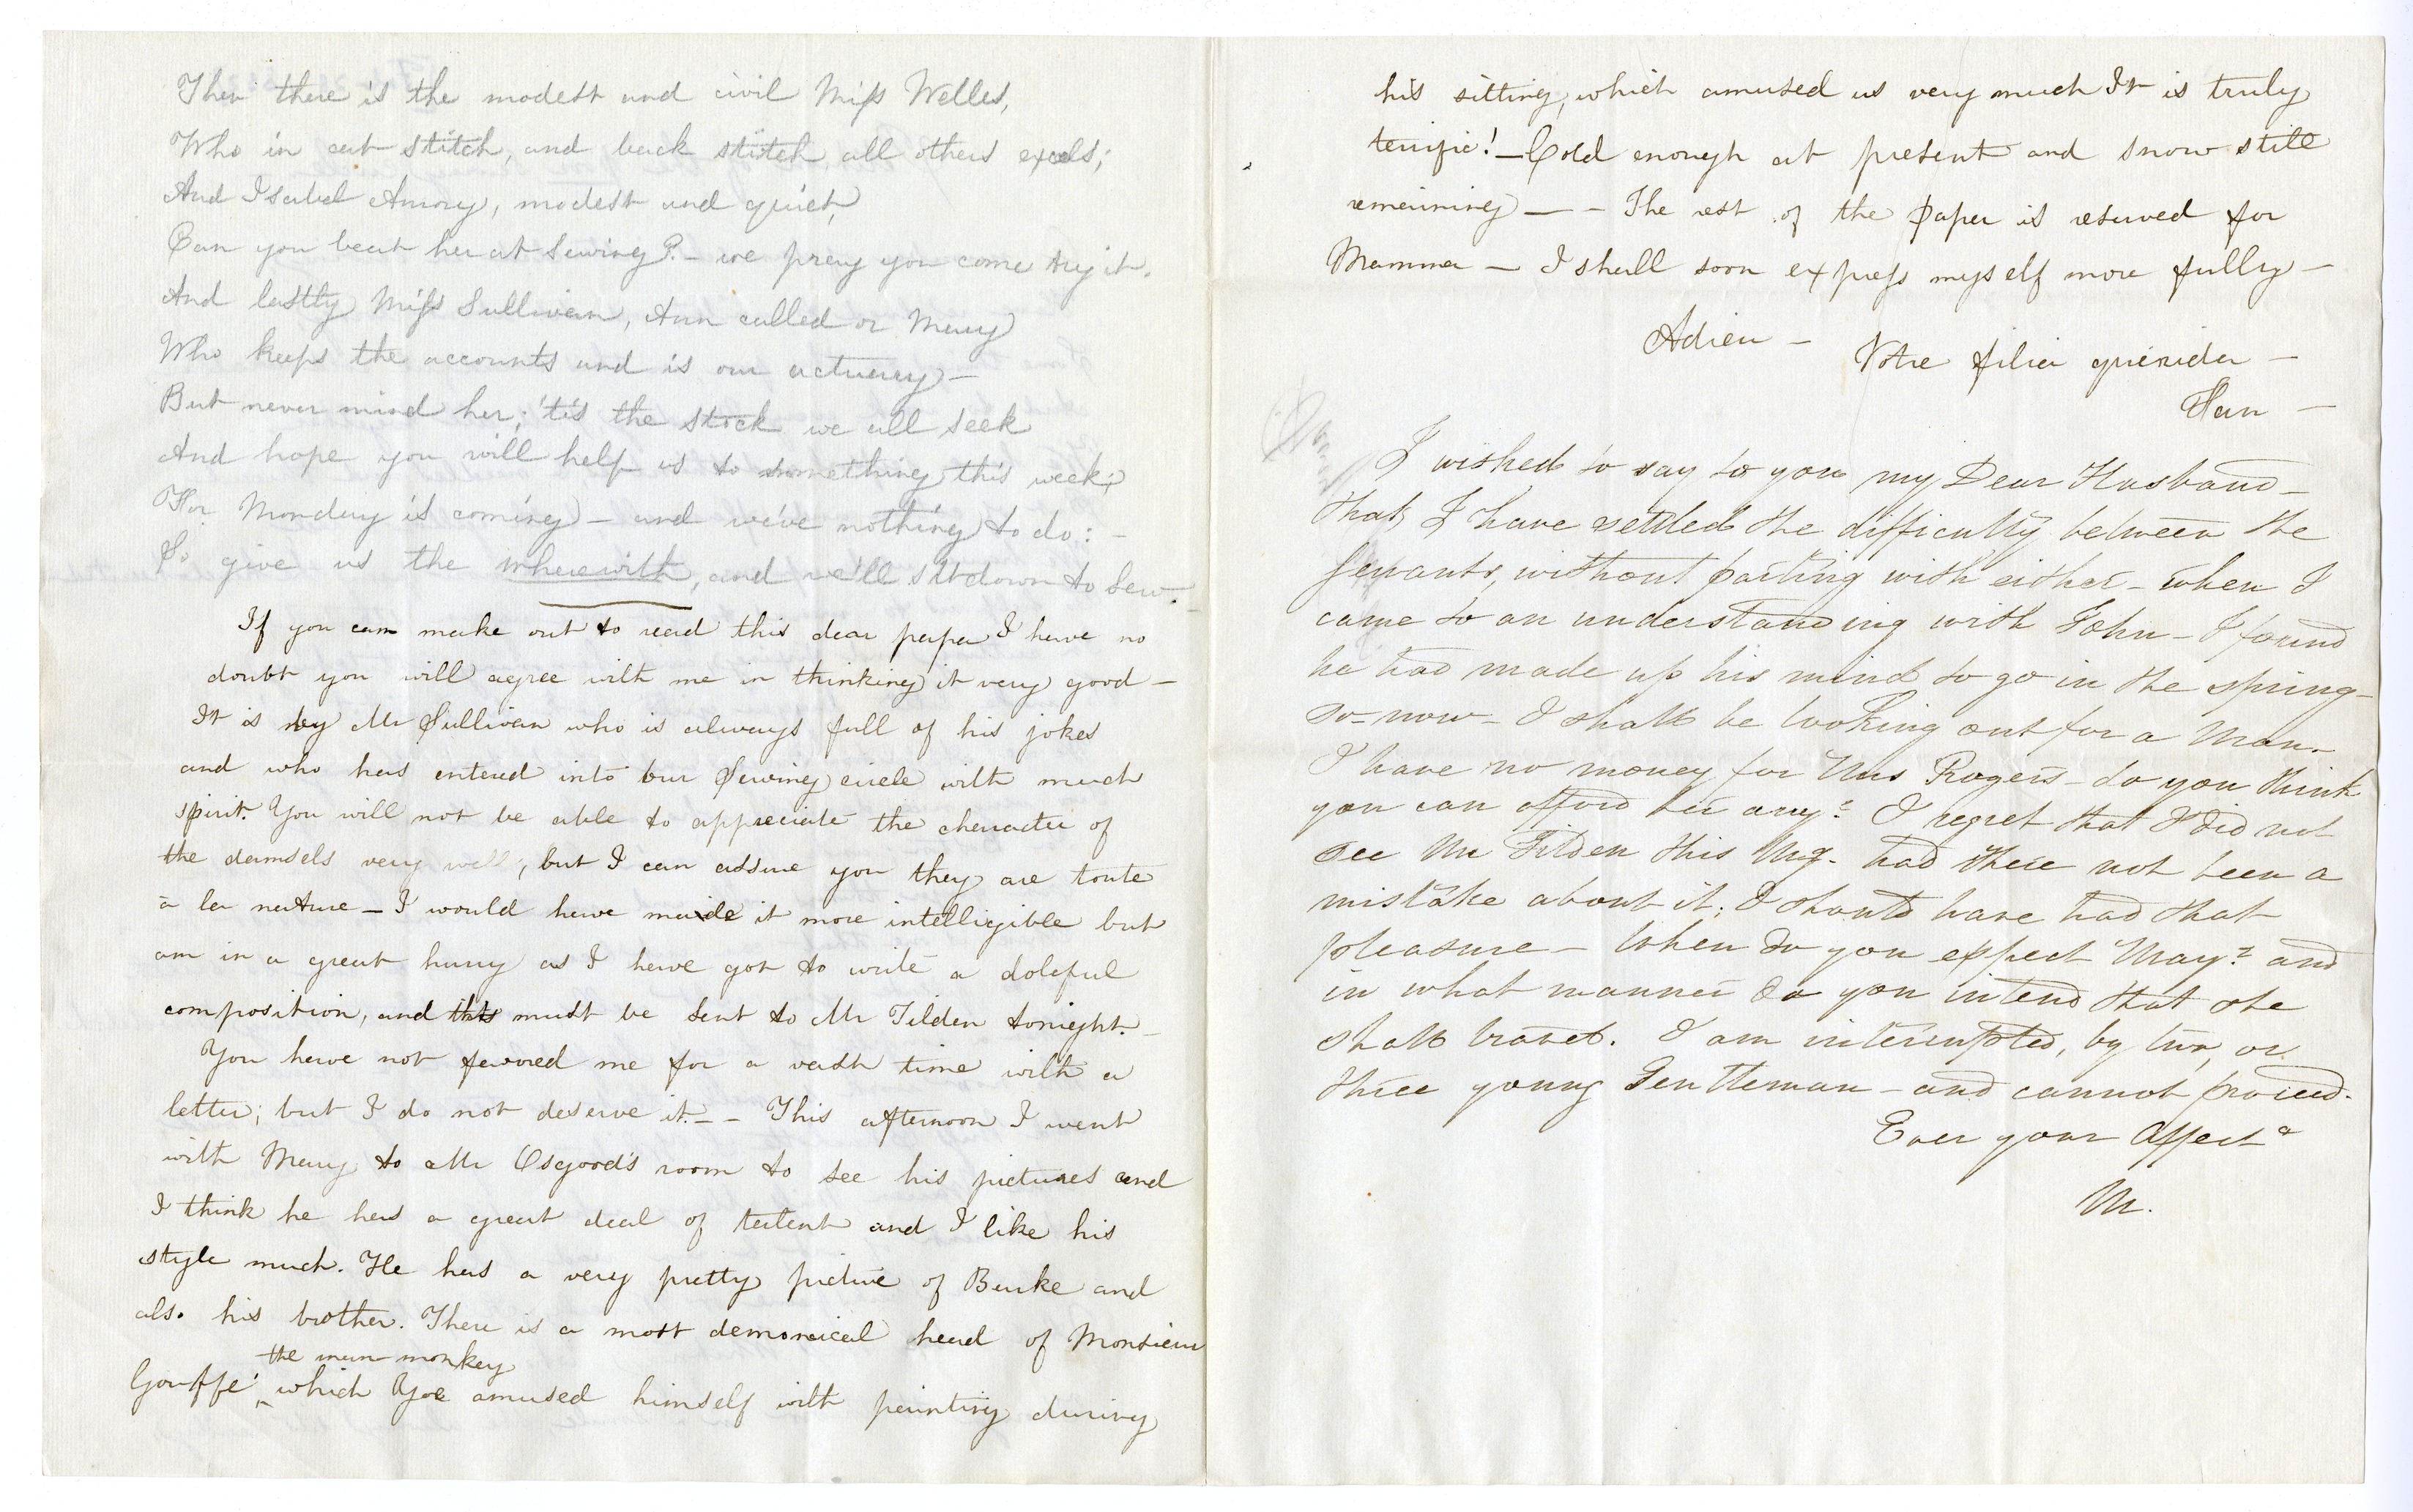 Then there is the modest and civil Miss Welles,
Who in cat stitch, and back stitch all others excels;
And Isabel Amory, modest and quiet,
Can you beat her at Sewing? - we pray you come try it.
And lastly Miss Sullivan, Ann called or Mary
Who keeps the accounts and is our actuary -
But never mind her; 'tis the stock we all seek
And hope you will help us to something this week;
For Monday is coming - and we've nothing to do: -
So give us the wherewith, and we'll sit down to Sew. -
If you can make out to read this dear papa I have no
doubt you will agree with me in thinking it very good -
It is by Mr Sullivan who is always full of his jokes
and who has entered into our Sewing circle with much
spirit. You will not be able to appreciate the character of
the damsels very well, but I can assure you they are toute
à la nature - I would have made it more intelligible but
am in a great hurry as I have got to write a doleful
composition, and this must be sent to Mr Tilden tonight. -
You have not favored me for a vast time with a
letter; but I do not deserve it. - - This afternoon I went
with Mary to Mr Osgood's room to see his pictures and
I think he has a great deal of talent and I like his
style much. He has a very pretty picture of Burke and
also his brother. There is a most demonical head of Monsieur
the man monkey
Gouffé ^ which he amused himself with painting during
his sitting, which amused us very much It is truly
terrific! - Cold enough at present and snow still
remaining - - The rest of the paper is reserved for
Mamma - I shall soon express myself more fully -
Adieu -
Votre filia querida -
Fan -
I wished to say to you my Dear Husband -
that I have settled the difficulty between the
Servants, without parting with either - when I
came to an understanding with John - I found
he had made up his mind to go in the spring -
so - now - I shall be looking out for a Man -
I have no money for Mrs Rogers - do you think
you can afford her any? I regret that I did not
see Mr Tilden this Mg. had there not been a
mistake about it; I should have had that
pleasure - When do you expect Mary? and
in what manner do you intend that she
shall travel. I am interrupted, by two, or
three young Gentleman - and cannot proceed.
Ever your Affect^e
M.